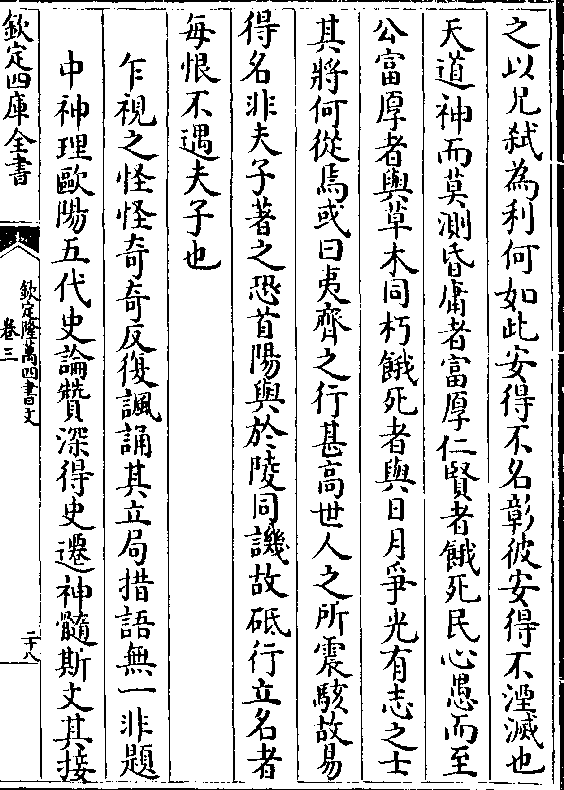 之以兄弑為利何如此安得不名彰彼安得不湮滅也
天道神而莫測昏庸者富厚仁賢者餓死民心愚而至
公富厚者與草木同朽餓死者與日月爭光有志之士
其將何從焉或曰夷齊之行甚高世人之所震駭故易
得名非夫子著之恐首陽與於陵同譏故砥行立名者
每恨不遇夫子也
乍視之怪怪奇奇反復諷誦其立局措語無一非題
中神理歐陽五代史論贊深得史遷神髓斯文其接
欽定四庫全書
欽定隆萬四書文
卷三
二十八